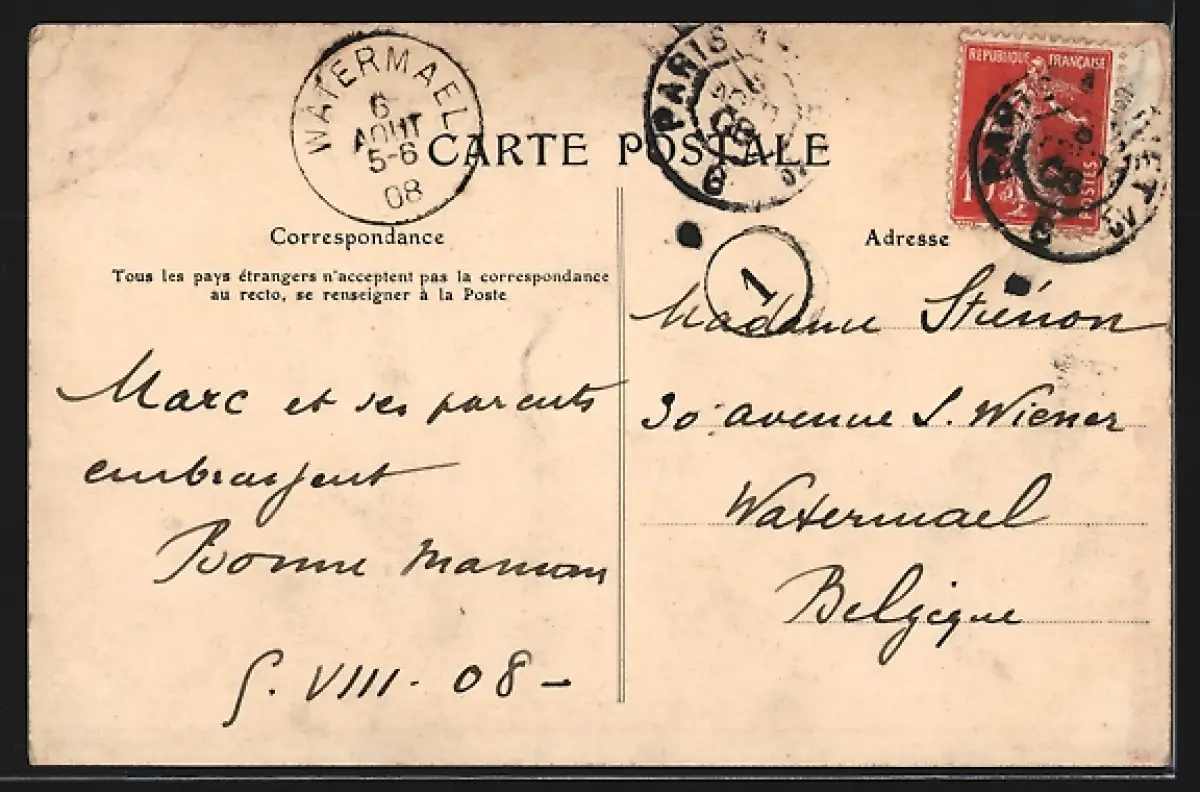 WATERMAEL
6
AOUT
5-6
08
PARIS
08
RÉPUBLIQUE FRANÇAISE
10
POSTES
CARTE POSTALE
Correspondance
Tous les pays étrangers n'acceptent pas la correspondance
au recto, se renseigner à la Poste
Marc et ses parents
embrassent
Bonne maman
5. VIII. 08 –
Adresse
1
Madame Stiénon
30 avenue L. Wiener
Watermael
Belgique